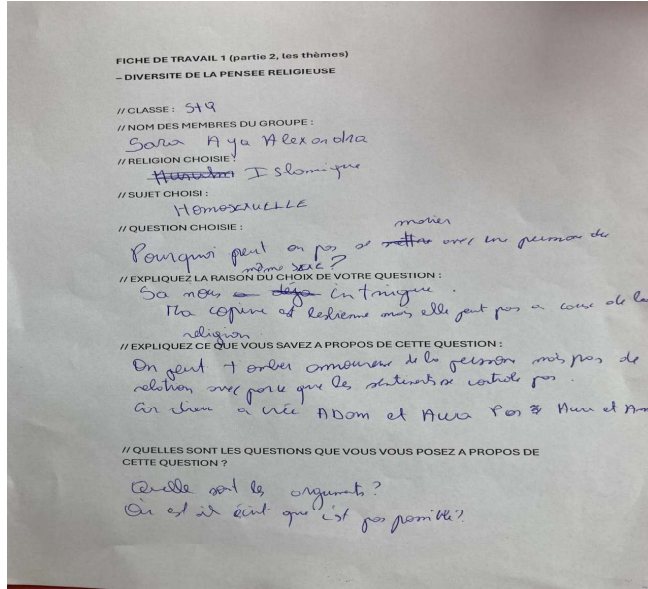 FICHE DE TRAVAIL 1 (partie 2, les thèmes)
– DIVERSITE DE LA PENSEE RELIGIEUSE
// CLASSE : 5tQ
// NOM DES MEMBRES DU GROUPE :
Sara Aya Alexandra
// RELIGION CHOISIE :
Islamique
// SUJET CHOISI :
HOMOSEXUELLE
// QUESTION CHOISIE :
Pourquoi peut on pas se marier avec une personne du
même sexe ?
// EXPLIQUEZ LA RAISON DU CHOIX DE VOTRE QUESTION :
Sa nous a déja intrigue.
Ma copine est lesbienne mais elle peut pas a cause de la
religion
// EXPLIQUEZ CE QUE VOUS SAVEZ A PROPOS DE CETTE QUESTION :
On peut tomber amoureuse de la personne mais pas de
relation avec parce que les sentiments se controle pas.
Car dieu a crée ADam et Awa Pas Awa et
// QUELLES SONT LES QUESTIONS QUE VOUS VOUS POSEZ A PROPOS DE
CETTE QUESTION ?
Quelle sont les arguments ?
Où est il écrit que c'est pas possible ?